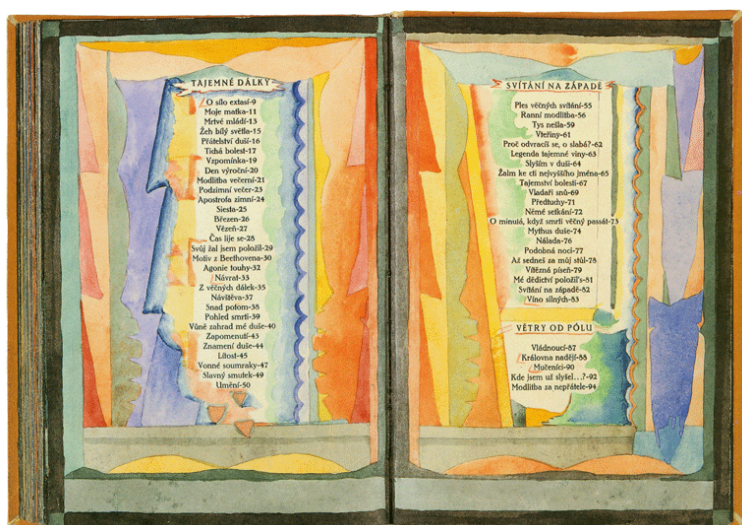 TAJEMNÉ DÁLKY
O sílo extasí-9
Moje matka-11
Mrtvé mládí-13
Žeh bílý světla-15
Přátelství duší-16
Tichá bolest-17
Vzpomínka-19
Den výroční-20
Modlitba večerní-21
Podzimní večer-23
Apostrofa zimní-24
Siesta-25
Březen-26
Vězeň-27
Čas lije se-28
Svůj žal jsem položil-29
Motiv z Beethovena-30
Agonie touhy-32
Návrat-33
Z věčných dálek-35
Návštěva-37
Snad potom-38
Pohled smrti-39
Vůně zahrad mé duše-40
Zapomenutí-43
Znamení duše-44
Lítost-45
Vonné soumraky-47
Slavný smutek-49
Umění-50
SVÍTÁNÍ NA ZÁPADĚ
Ples věčných svítání-55
Ranní modlitba-56
Tys nešla-59
Vteřiny-61
Proč odvracíš se, o slabá?-62
Legenda tajemné viny-63
Slyším v duši-64
Žalm ke cti nejvyššího jména-65
Tajemství bolesti-67
Vladaři snů-69
Předtuchy-71
Němé setkání-72
O minulá, když smrtí věčný passát-73
Mythus duše-74
Nálada-76
Podobná noci-77
Až sedneš za můj stůl-78
Vítězná píseň-79
Mé dědictví položil's-81
Svítání na západě-82
Víno silných-83
VĚTRY OD PÓLU
Vládnoucí-87
Královna nadějí-88
Mučeníci-90
Kde jsem už slyšel...?-92
Modlitba za nepřátele-94